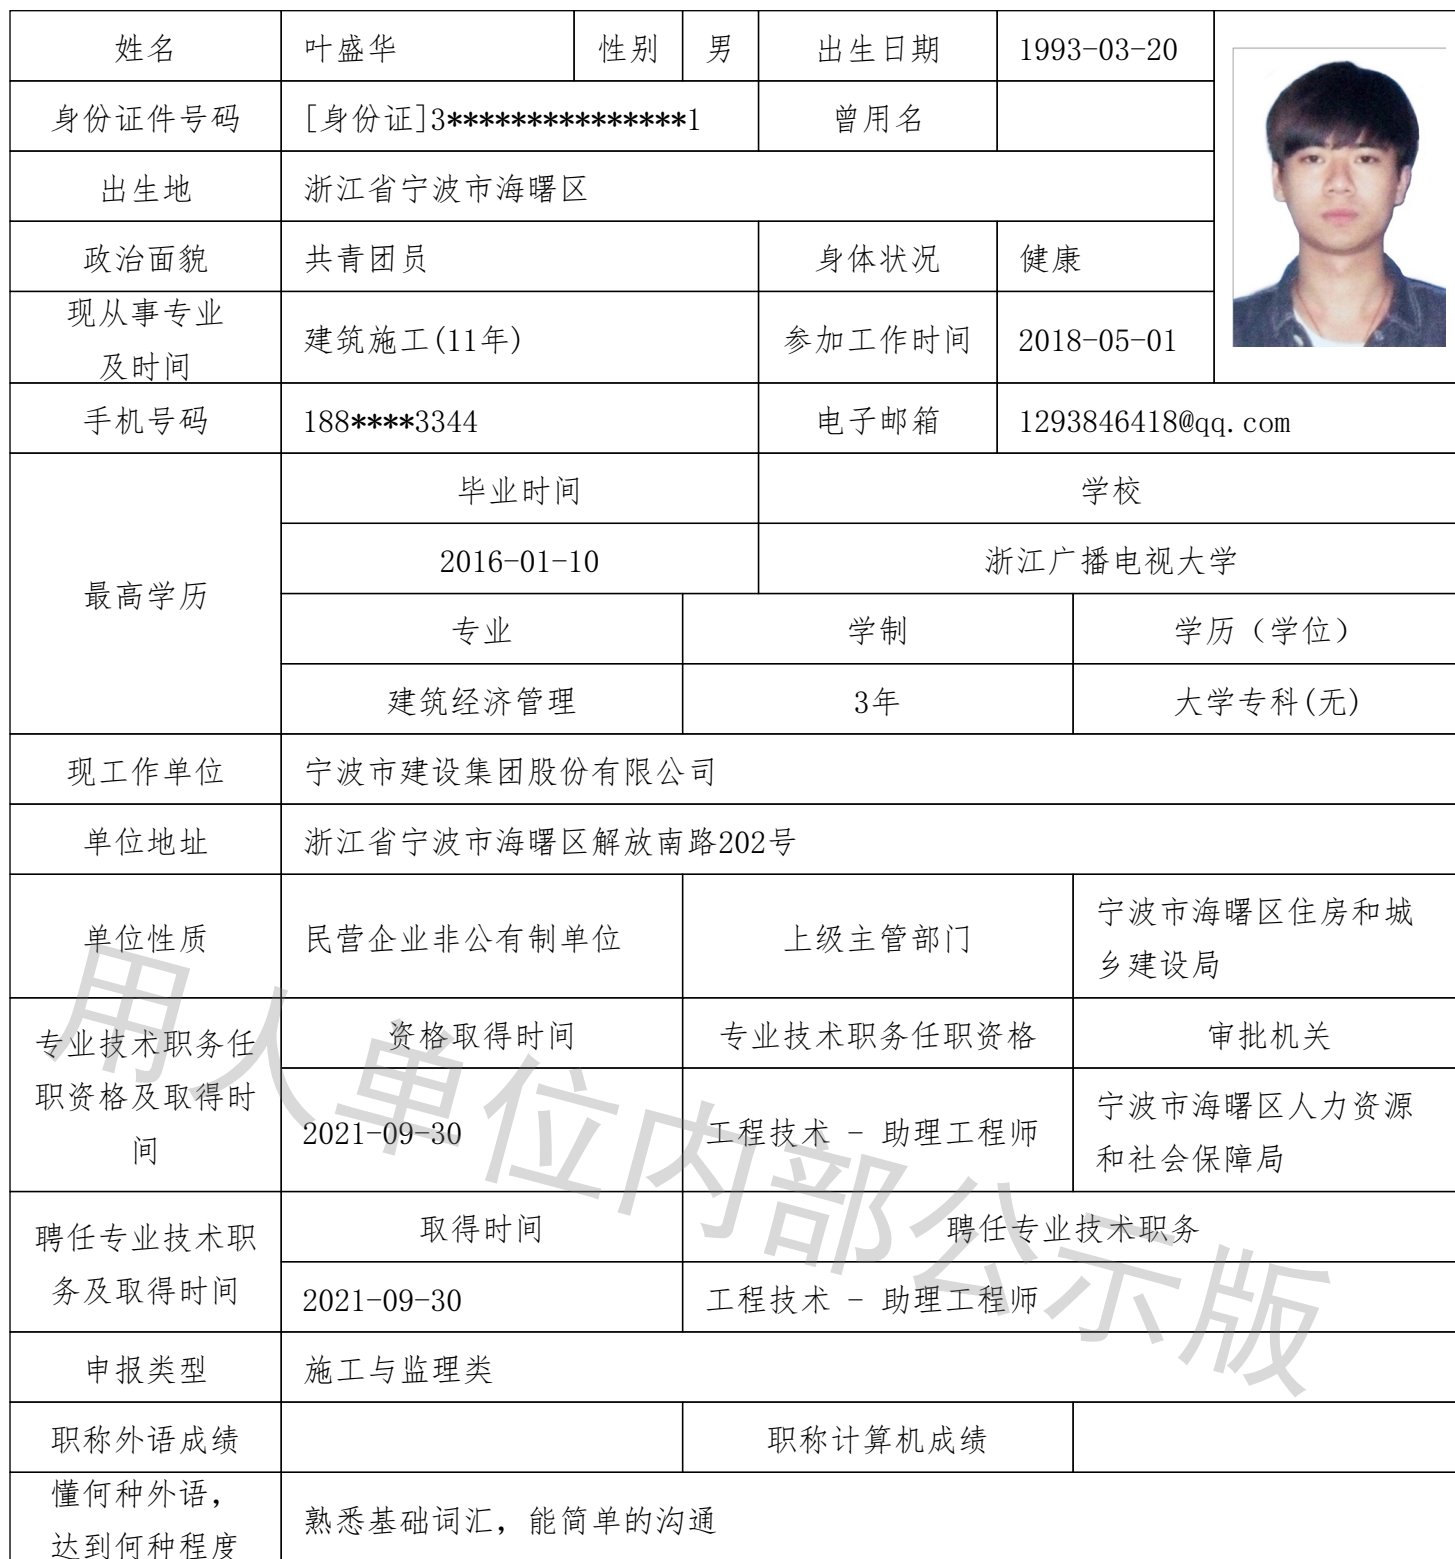 姓名 叶盛华 性别 男 出生日期 1993-03-20
身份证件号码 [身份证]3***************1 曾用名
出生地 浙江省宁波市海曙区
政治面貌 共青团员 身体状况 健康
现从事专业
及时间 建筑施工(11年) 参加工作时间 2018-05-01
手机号码 188****3344 电子邮箱 1293846418@qq.com
最高学历
毕业时间 学校
2016-01-10 浙江广播电视大学
专业 学制 学历（学位）
建筑经济管理 3年 大学专科(无)
现工作单位 宁波市建设集团股份有限公司
单位地址 浙江省宁波市海曙区解放南路202号
单位性质 民营企业非公有制单位 上级主管部门 宁波市海曙区住房和城
乡建设局
专业技术职务任
职资格及取得时
间
资格取得时间 专业技术职务任职资格 审批机关
2021-09-30 工程技术 - 助理工程师 宁波市海曙区人力资源
和社会保障局
聘任专业技术职
务及取得时间
取得时间 聘任专业技术职务
2021-09-30 工程技术 - 助理工程师
申报类型 施工与监理类
职称外语成绩 职称计算机成绩
懂何种外语，
达到何种程度 熟悉基础词汇，能简单的沟通
用人单位内部公示版